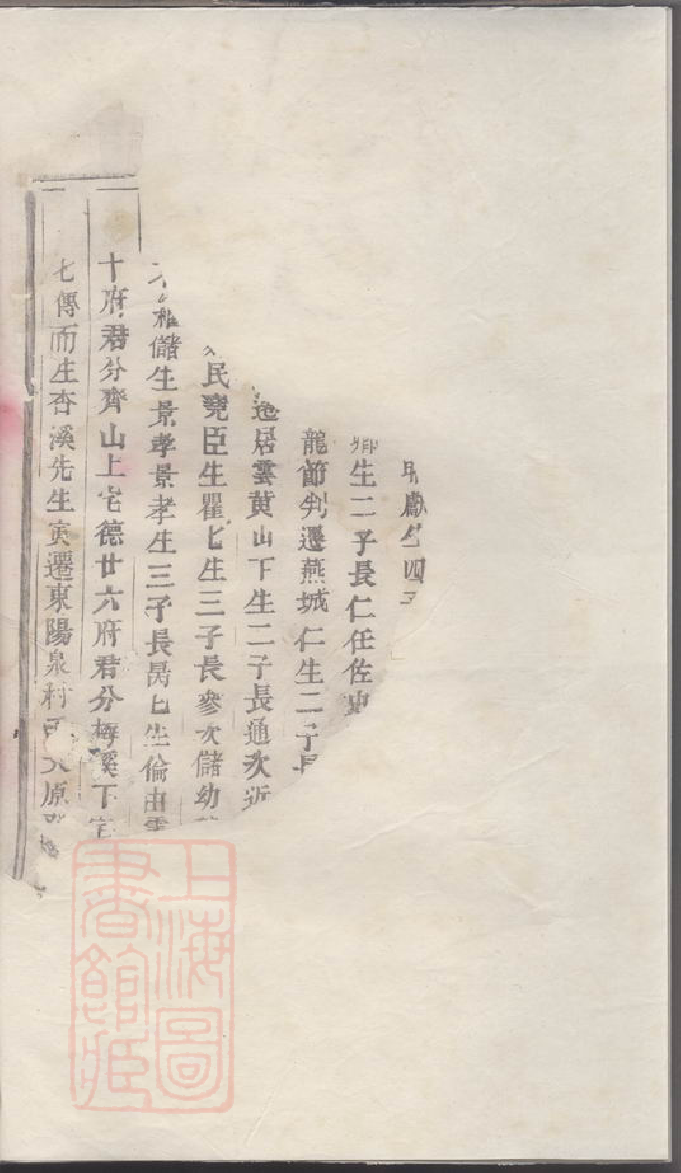 生四
生二子長仁任佐史
龍節判遷燕城仁生二子長
逸居雲黄山下生二子長通次近
民堯臣生瞿七生三子長參次儲幼
儲生景孝景孝生三子長昺七生倫由雲
十府君分齊山上宅德廿六府君分梅溪下宅
七傳而生杏溪先生寅遷東陽泉村
原
上海圖
書館藏